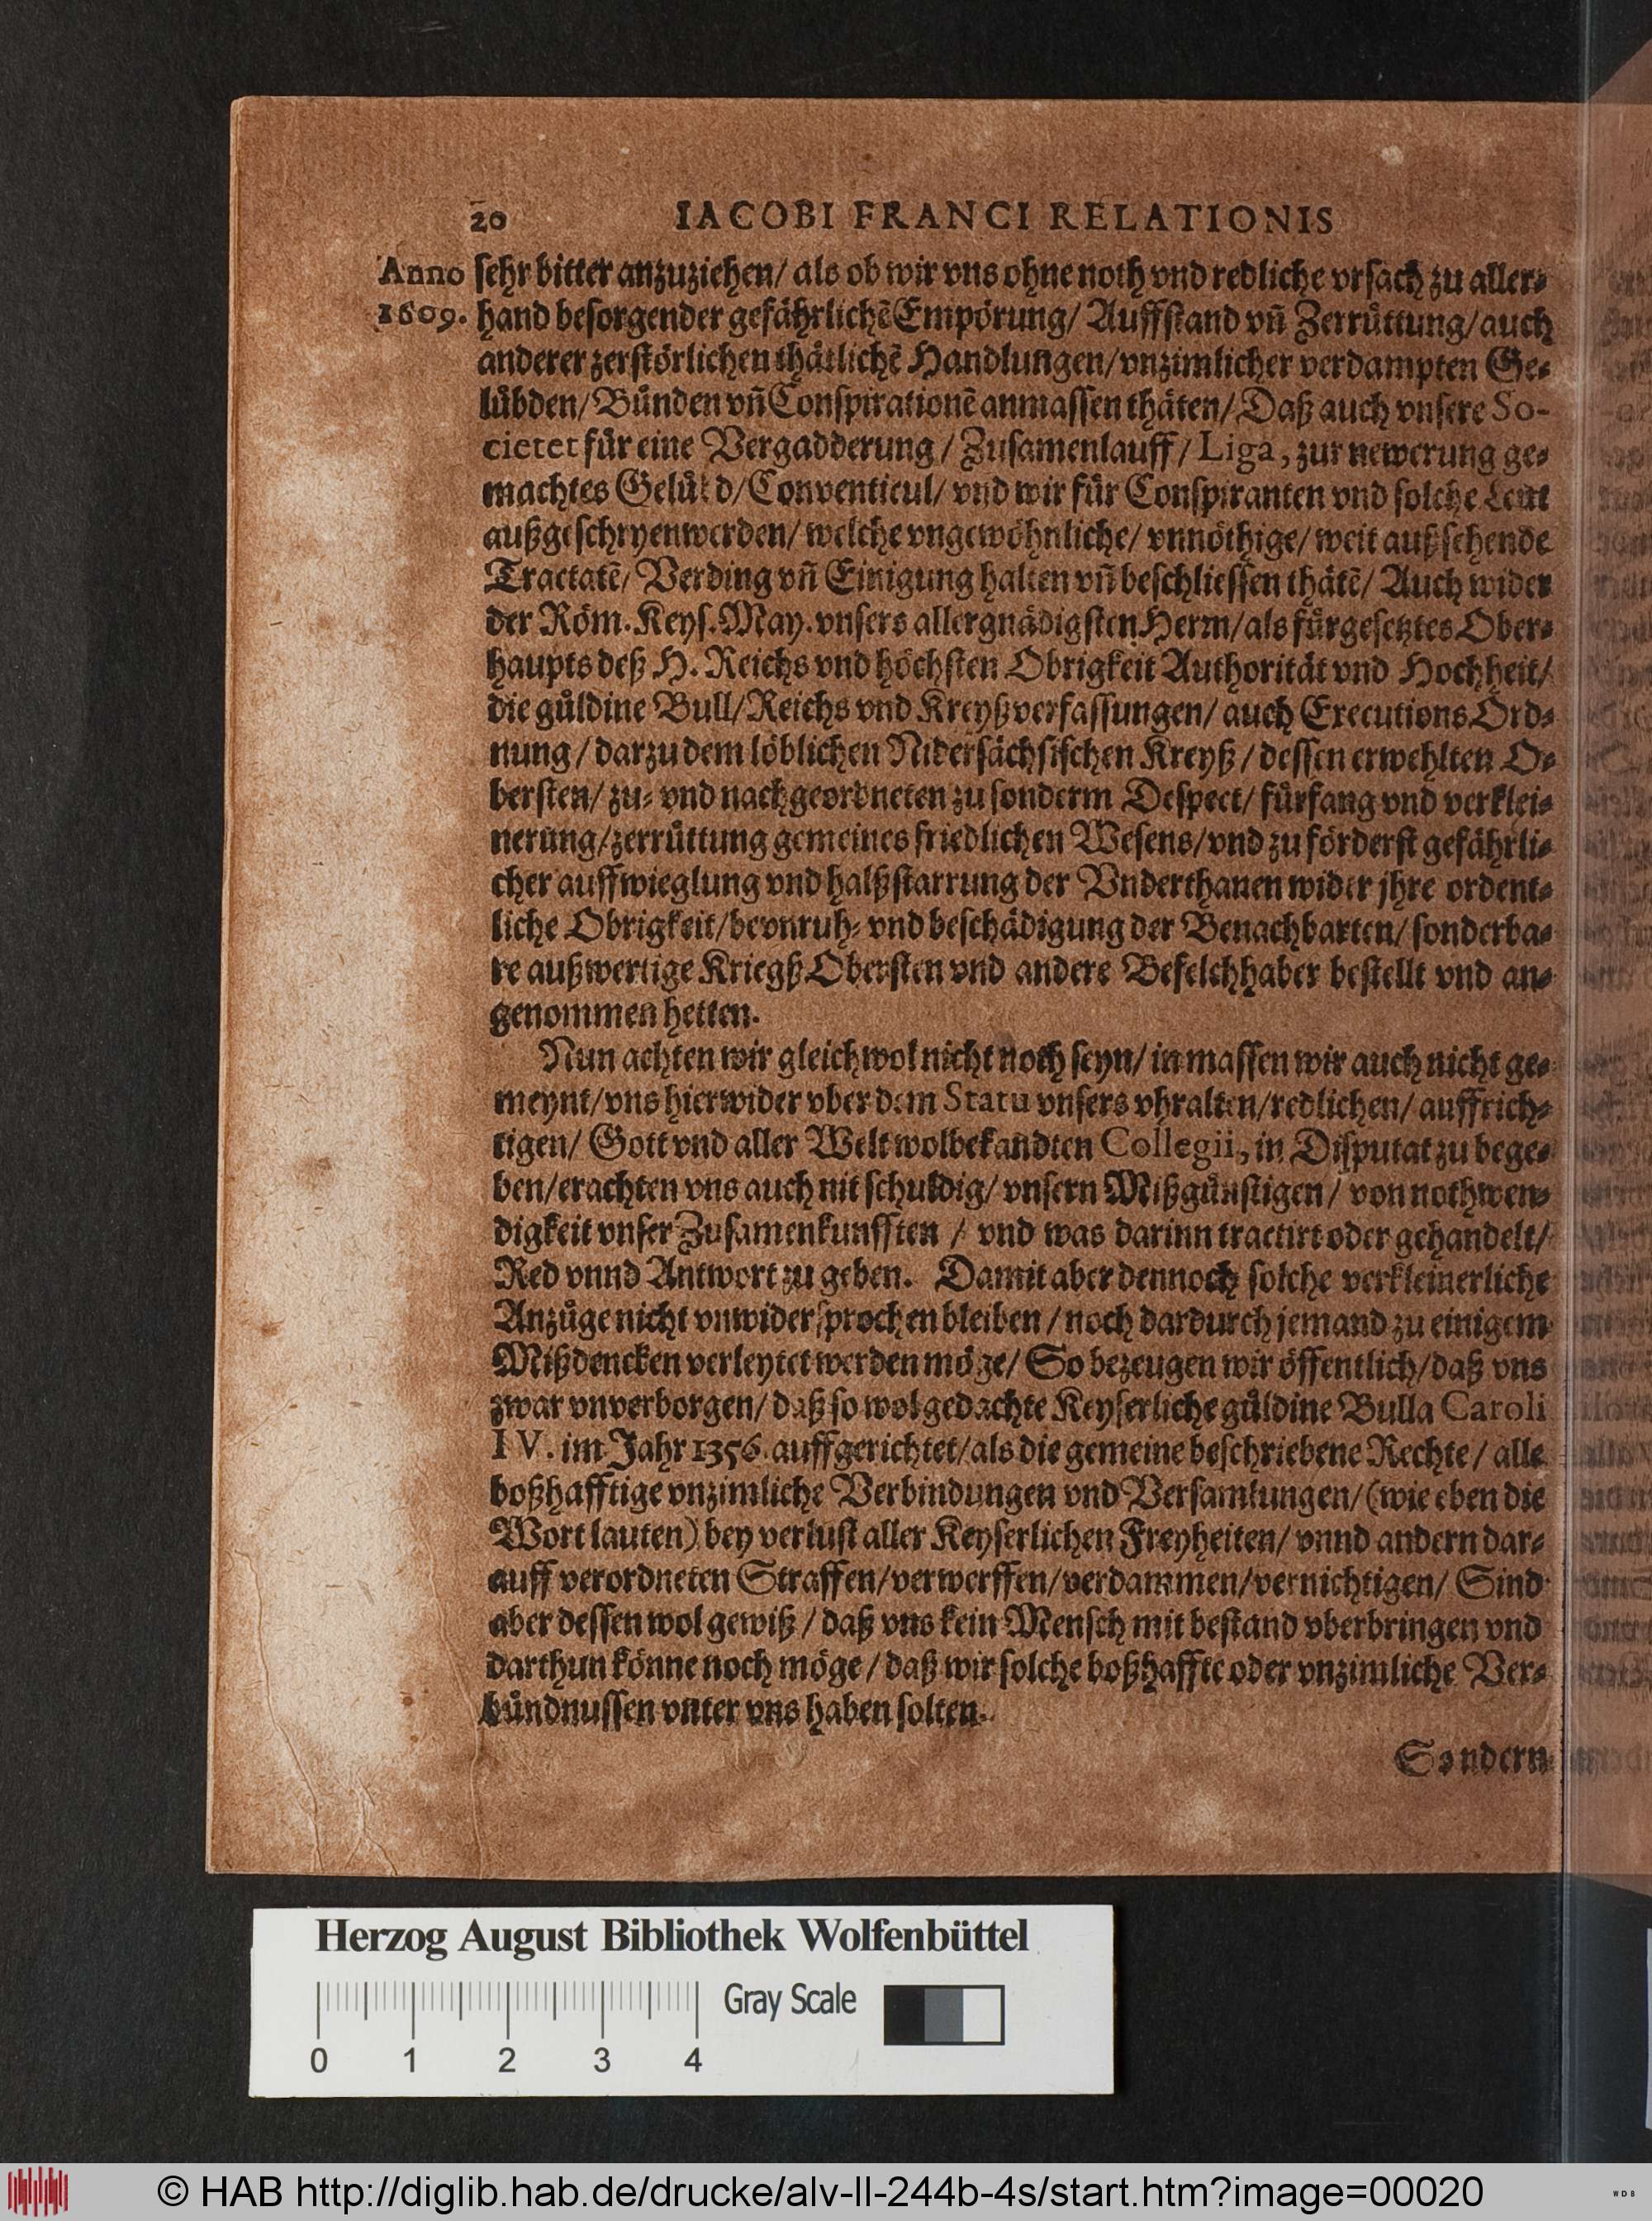 20 IACOBI FRANCI RELATIONIS
Anno sehr bitter anzuziehen/ als ob wir vns ohne noth vnd redliche vrsach zu aller⸗
1609. hand besorgender gefährlichẽ Empörung/ Auffstand vñ Zerrüttung/ auch
anderer zerstörlichen thätlichẽ Handlungen/ vnzimlicher verdampten Ge⸗
lübden/ Bünden vñ Conspirationẽ anmassen thäten/ Daß auch vnsere So-
cietet für eine Vergadderung / Zusamenlauff / Liga, zur newerung ge⸗
machtes Gelübd/ Conventicul/ vnd wir für Conspiranten vnd solche Leut
außgeschryen werden/ welche vngewöhnliche/ vnnöthige/ weit außsehende
Tractatẽ/ Verding vñ Einigung halten vñ beschliessen thätẽ/ Auch wider
der Röm. Keys. May. vnsers allergnädigsten Herrn/ als fürgesetztes Ober⸗
haupts deß H. Reichs vnd höchsten Obrigkeit Authorität vnd Hochheit/
die güldine Bull/ Reichs vnd Kreyßverfassungen/ auch Executions Ord⸗
nung / darzu dem löblichen Nidersächsischen Kreyß / dessen erwehlten O⸗
bersten/ zu⸗ vnd nachgeordneten zu sonderm Despect/ fürfang vnd verklei⸗
nerung/ zerrüttung gemeines friedlichen Wesens/ vnd zu förderst gefährli⸗
cher auffwieglung vnd halßstarrung der Vnderthanen wider jhre ordent⸗
liche Obrigkeit/ bevnruh⸗ vnd beschädigung der Benachbarten/ sonderba⸗
re außwertige Kriegß Obersten vnd andere Befelchhaber bestellt vnd an⸗
genommen hetten.
Nun achten wir gleichwol nicht noch seyn/ in massen wir auch nicht ge⸗
meynt/ vns hierwider vber dem Statu vnsers vhralten/ redlichen/ auffrich⸗
tigen/ Gott vnd aller Welt wolbekandten Collegii, in Disputat zu bege⸗
ben/ erachten vns auch nit schuldig/ vnsern Mißgünstigen / von nothwen⸗
digkeit vnser Zusamenkunfften / vnd was darinn tractirt oder gehandelt/
Red vnnd Antwort zu geben. Damit aber dennoch solche verkleinerliche
Anzüge nicht vnwidersprochen bleiben / noch dardurch jemand zu einigem
Mißdencken verleytet werden möge/ So bezeugen wir öffentlich/ daß vns
zwar vnverborgen/ daß so wol gedachte Keyserliche güldine Bulla Caroli
IV. im Jahr 1356. auffgerichtet/ als die gemeine beschriebene Rechte / alle
boßhafftige vnzimliche Verbindungen vnd Versamlungen/ (wie eben die
Wort lauten) bey verlust aller Keyserlichen Freyheiten/ vnnd andern dar⸗
auff verordneten Straffen/ verwerffen/ verdammen/ vernichtigen/ Sind
aber dessen wol gewiß / daß vns kein Mensch mit bestand vberbringen vnd
darthun könne noch möge / daß wir solche boßhaffte oder vnzimliche Ver⸗
bündnussen vnter vns haben solten.
Sondern
Herzog August Bibliothek Wolfenbüttel
Gray Scale
0 1 2 3 4
© HAB http://diglib.hab.de/drucke/alv-ll-244b-4s/start.htm?image=00020
WDB